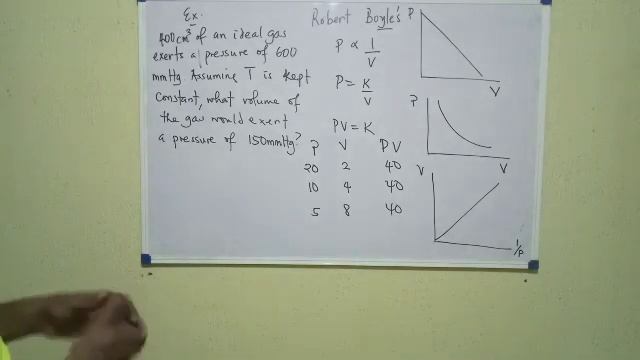 Ex.
400cm³ of an ideal gas
exerts a pressure of 600
mmHg. Assuming T is kept
Constant, what volume of
the gas would exert
a pressure of 150mmHg?
Robert Boyle's
P ∝ 1/V
P = K/V
PV = K
P V PV
20 2 40
10 4 40
5 8 40
P
V
P
V
V
1/P